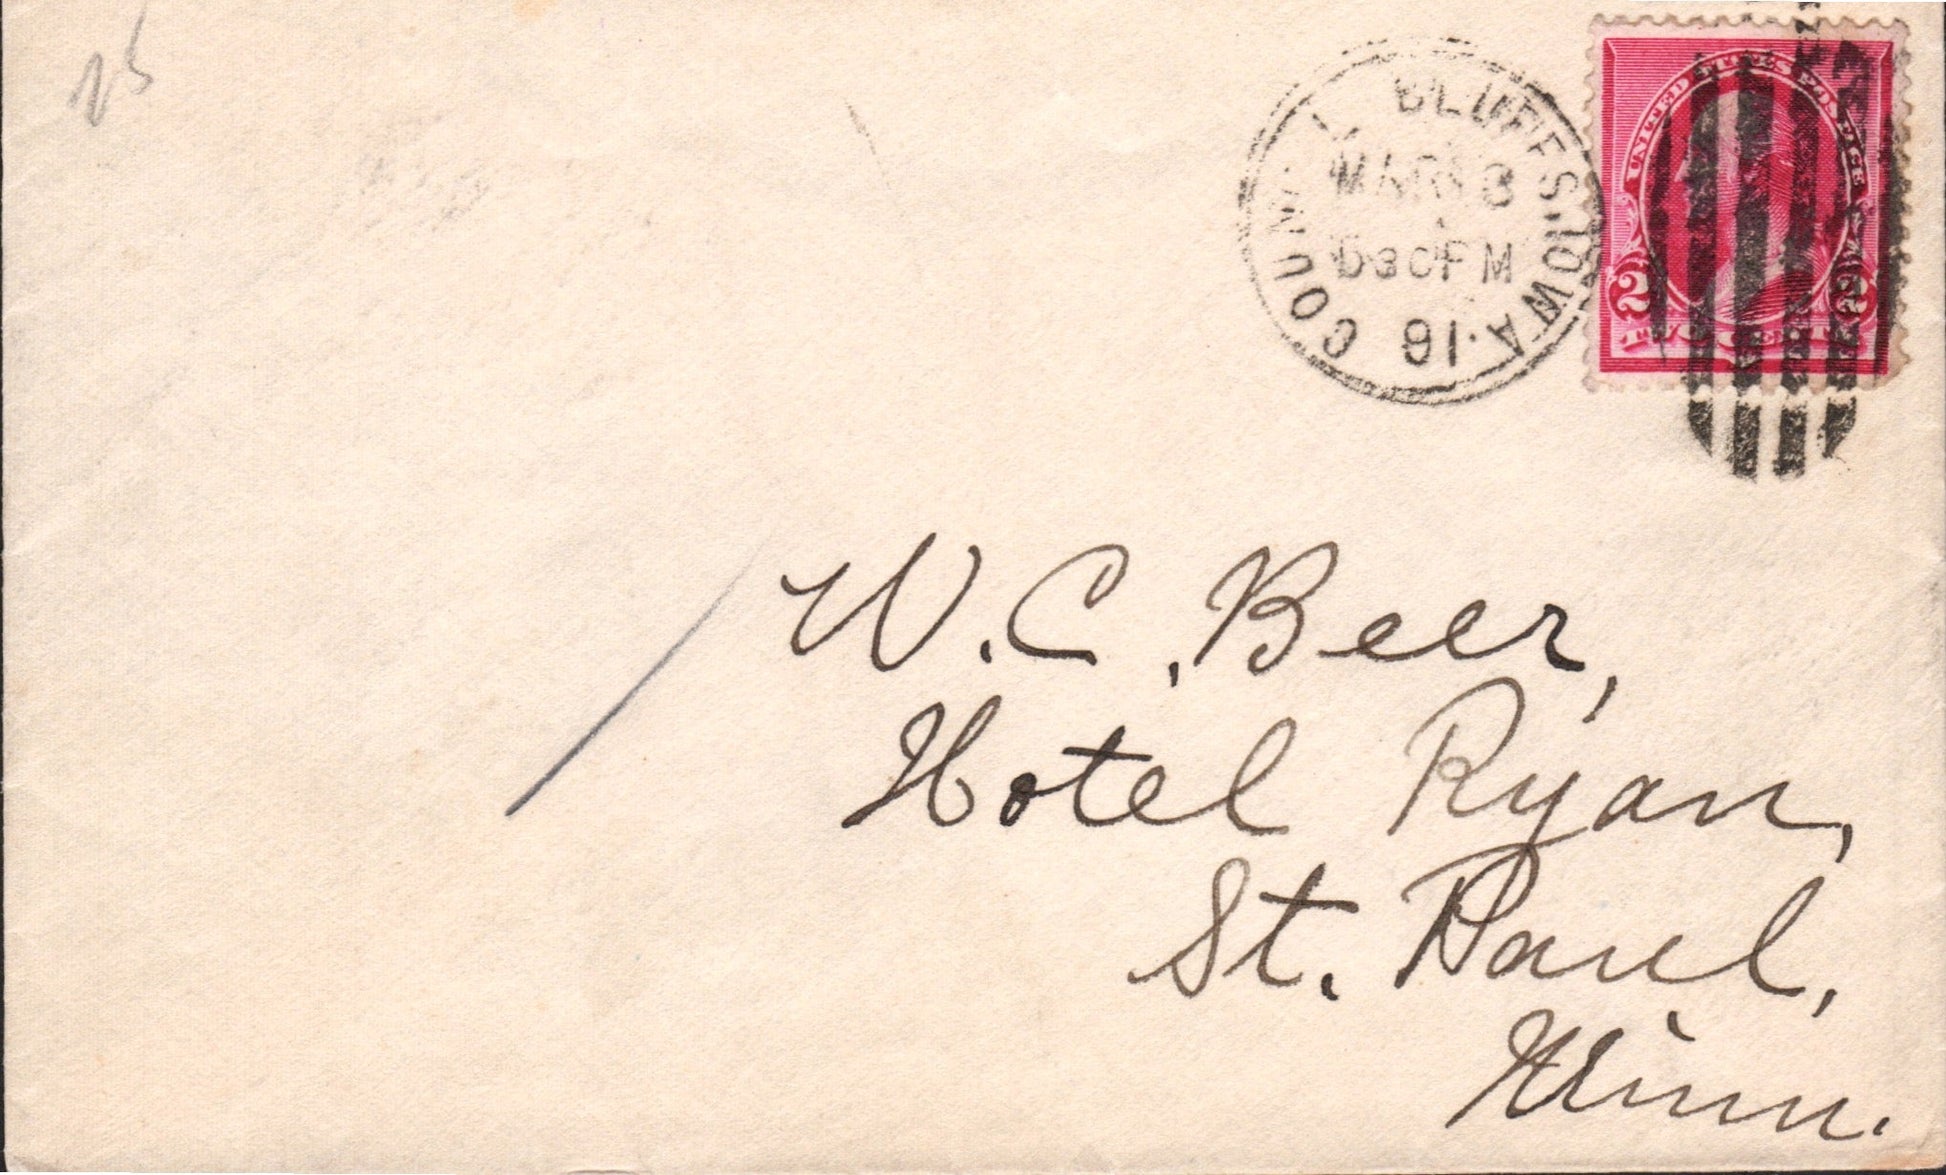 25
COUNCIL BLUFFS. IOWA.
MAR 3
PM
91
UNITED STATES POSTAGE
2 2
TWO CENTS
W. C. Beer,
Hotel Ryan,
St. Paul,
Minn.